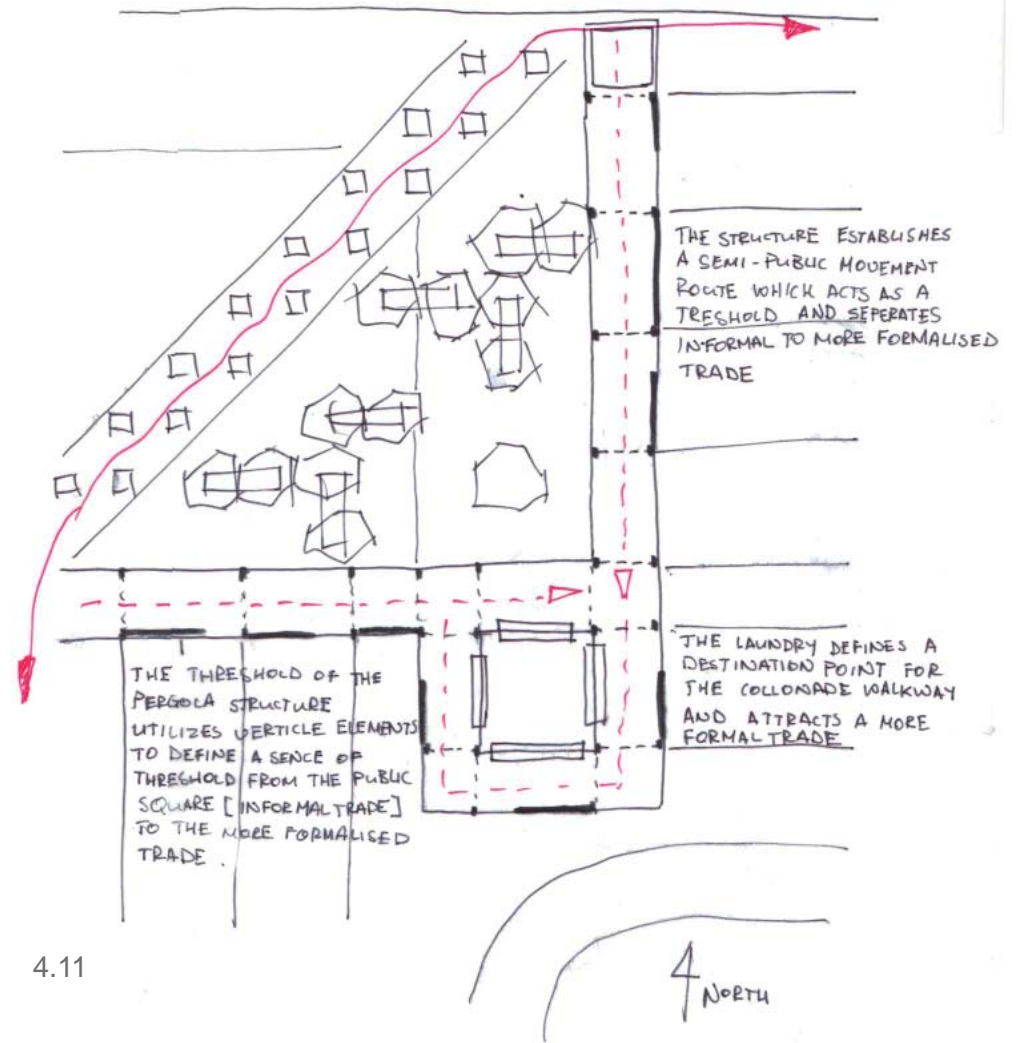 THE STRUCTURE ESTABLISHES
A SEMI-PUBLIC MOVEMENT
ROUTE WHICH ACTS AS A
TRESHOLD AND SEPERATES
INFORMAL TO MORE FORMALISED
TRADE
THE LAUNDRY DEFINES A
DESTINATION POINT FOR
THE COLLONADE WALKWAY
AND ATTRACTS A MORE
FORMAL TRADE
THE THRESHOLD OF THE
PERGOLA STRUCTURE
UTILIZES VERTICLE ELEMENTS
TO DEFINE A SENCE OF
THRESHOLD FROM THE PUBLIC
SQUARE [INFORMAL TRADE]
TO THE MORE FORMALISED
TRADE.
4.11
NORTH